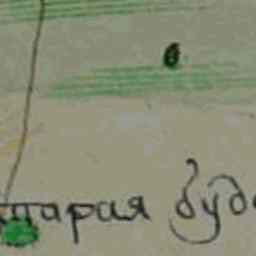 тарая буд